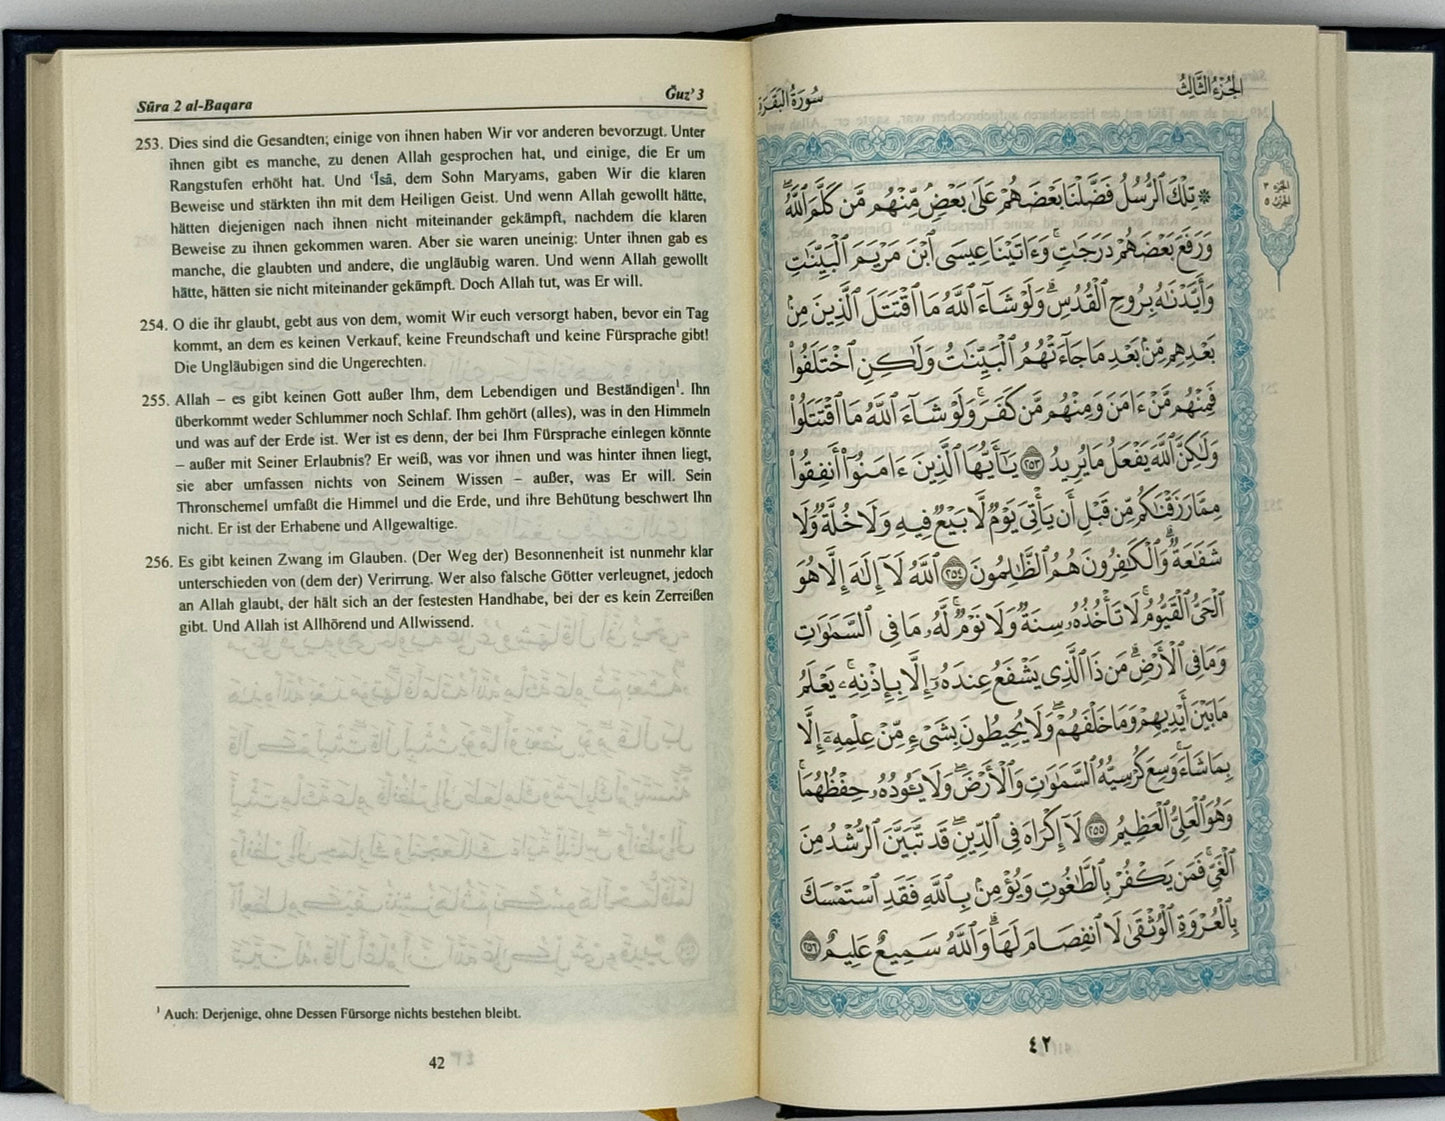 Sūra 2 al-Baqara
Ǧuz’ 3
253. Dies sind die Gesandten; einige von ihnen haben Wir vor anderen bevorzugt. Unter
ihnen gibt es manche, zu denen Allah gesprochen hat, und einige, die Er um
Rangstufen erhöht hat. Und ‘Īsā, dem Sohn Maryams, gaben Wir die klaren
Beweise und stärkten ihn mit dem Heiligen Geist. Und wenn Allah gewollt hätte,
hätten diejenigen nach ihnen nicht miteinander gekämpft, nachdem die klaren
Beweise zu ihnen gekommen waren. Aber sie waren uneinig: Unter ihnen gab es
manche, die glaubten und andere, die ungläubig waren. Und wenn Allah gewollt
hätte, hätten sie nicht miteinander gekämpft. Doch Allah tut, was Er will.
254. O die ihr glaubt, gebt aus von dem, womit Wir euch versorgt haben, bevor ein Tag
kommt, an dem es keinen Verkauf, keine Freundschaft und keine Fürsprache gibt!
Die Ungläubigen sind die Ungerechten.
255. Allah – es gibt keinen Gott außer Ihm, dem Lebendigen und Beständigen¹. Ihn
überkommt weder Schlummer noch Schlaf. Ihm gehört (alles), was in den Himmeln
und was auf der Erde ist. Wer ist es denn, der bei Ihm Fürsprache einlegen könnte
– außer mit Seiner Erlaubnis? Er weiß, was vor ihnen und was hinter ihnen liegt,
sie aber umfassen nichts von Seinem Wissen – außer, was Er will. Sein
Thronschemel umfaßt die Himmel und die Erde, und ihre Behütung beschwert Ihn
nicht. Er ist der Erhabene und Allgewaltige.
256. Es gibt keinen Zwang im Glauben. (Der Weg der) Besonnenheit ist nunmehr klar
unterschieden von (dem der) Verirrung. Wer also falsche Götter verleugnet, jedoch
an Allah glaubt, der hält sich an der festesten Handhabe, bei der es kein Zerreißen
gibt. Und Allah ist Allhörend und Allwissend.
¹ Auch: Derjenige, ohne Dessen Fürsorge nichts bestehen bleibt.
42
الجُزْءُ الثَّالِثُ
سُورَةُ البَقَرَةِ
۞ تِلْكَ ٱلرُّسُلُ فَضَّلْنَا بَعْضَهُمْ عَلَىٰ بَعْضٍ مِّنْهُم مَّن كَلَّمَ ٱللَّهُۖ
وَرَفَعَ بَعْضَهُمْ دَرَجَٰتٍۚ وَءَاتَيْنَا عِيسَى ٱبْنَ مَرْيَمَ ٱلْبَيِّنَٰتِ
وَأَيَّدْنَٰهُ بِرُوحِ ٱلْقُدُسِۗ وَلَوْ شَآءَ ٱللَّهُ مَا ٱقْتَتَلَ ٱلَّذِينَ مِنۢ
بَعْدِهِم مِّنۢ بَعْدِ مَا جَآءَتْهُمُ ٱلْبَيِّنَٰتُ وَلَٰكِنِ ٱخْتَلَفُوا۟
فَمِنْهُم مَّنْ ءَامَنَ وَمِنْهُم مَّن كَفَرَۚ وَلَوْ شَآءَ ٱللَّهُ مَا ٱقْتَتَلُوا۟
وَلَٰكِنَّ ٱللَّهَ يَفْعَلُ مَا يُرِيدُ ٢٥٣ يَٰٓأَيُّهَا ٱلَّذِينَ ءَامَنُوٓا۟ أَنفِقُوا۟
مِمَّا رَزَقْنَٰكُم مِّن قَبْلِ أَن يَأْتِىَ يَوْمٌ لَّا بَيْعٌ فِيهِ وَلَا خُلَّةٌ وَلَا
شَفَٰعَةٌۗ وَٱلْكَٰفِرُونَ هُمُ ٱلظَّٰلِمُونَ ٢٥٤ ٱللَّهُ لَآ إِلَٰهَ إِلَّا هُوَ
ٱلْحَىُّ ٱلْقَيُّومُۚ لَا تَأْخُذُهُۥ سِنَةٌ وَلَا نَوْمٌۚ لَّهُۥ مَا فِى ٱلسَّمَٰوَٰتِ
وَمَا فِى ٱلْأَرْضِۗ مَن ذَا ٱلَّذِى يَشْفَعُ عِندَهُۥٓ إِلَّا بِإِذْنِهِۦۚ يَعْلَمُ
مَا بَيْنَ أَيْدِيهِمْ وَمَا خَلْفَهُمْۖ وَلَا يُحِيطُونَ بِشَىْءٍ مِّنْ عِلْمِهِۦٓ إِلَّا
بِمَا شَآءَۚ وَسِعَ كُرْسِيُّهُ ٱلسَّمَٰوَٰتِ وَٱلْأَرْضَۖ وَلَا يَـُٔودُهُۥ حِفْظُهُمَاۚ
وَهُوَ ٱلْعَلِىُّ ٱلْعَظِيمُ ٢٥٥ لَآ إِكْرَاهَ فِى ٱلدِّينِۖ قَد تَّبَيَّنَ ٱلرُّشْدُ مِنَ
ٱلْغَىِّۚ فَمَن يَكْفُرْ بِٱلطَّٰغُوتِ وَيُؤْمِنۢ بِٱللَّهِ فَقَدِ ٱسْتَمْسَكَ
بِٱلْعُرْوَةِ ٱلْوُثْقَىٰ لَا ٱنفِصَامَ لَهَاۗ وَٱللَّهُ سَمِيعٌ عَلِيمٌ ٢٥٦
الجزء ٣
الحزب ٥
٤٢